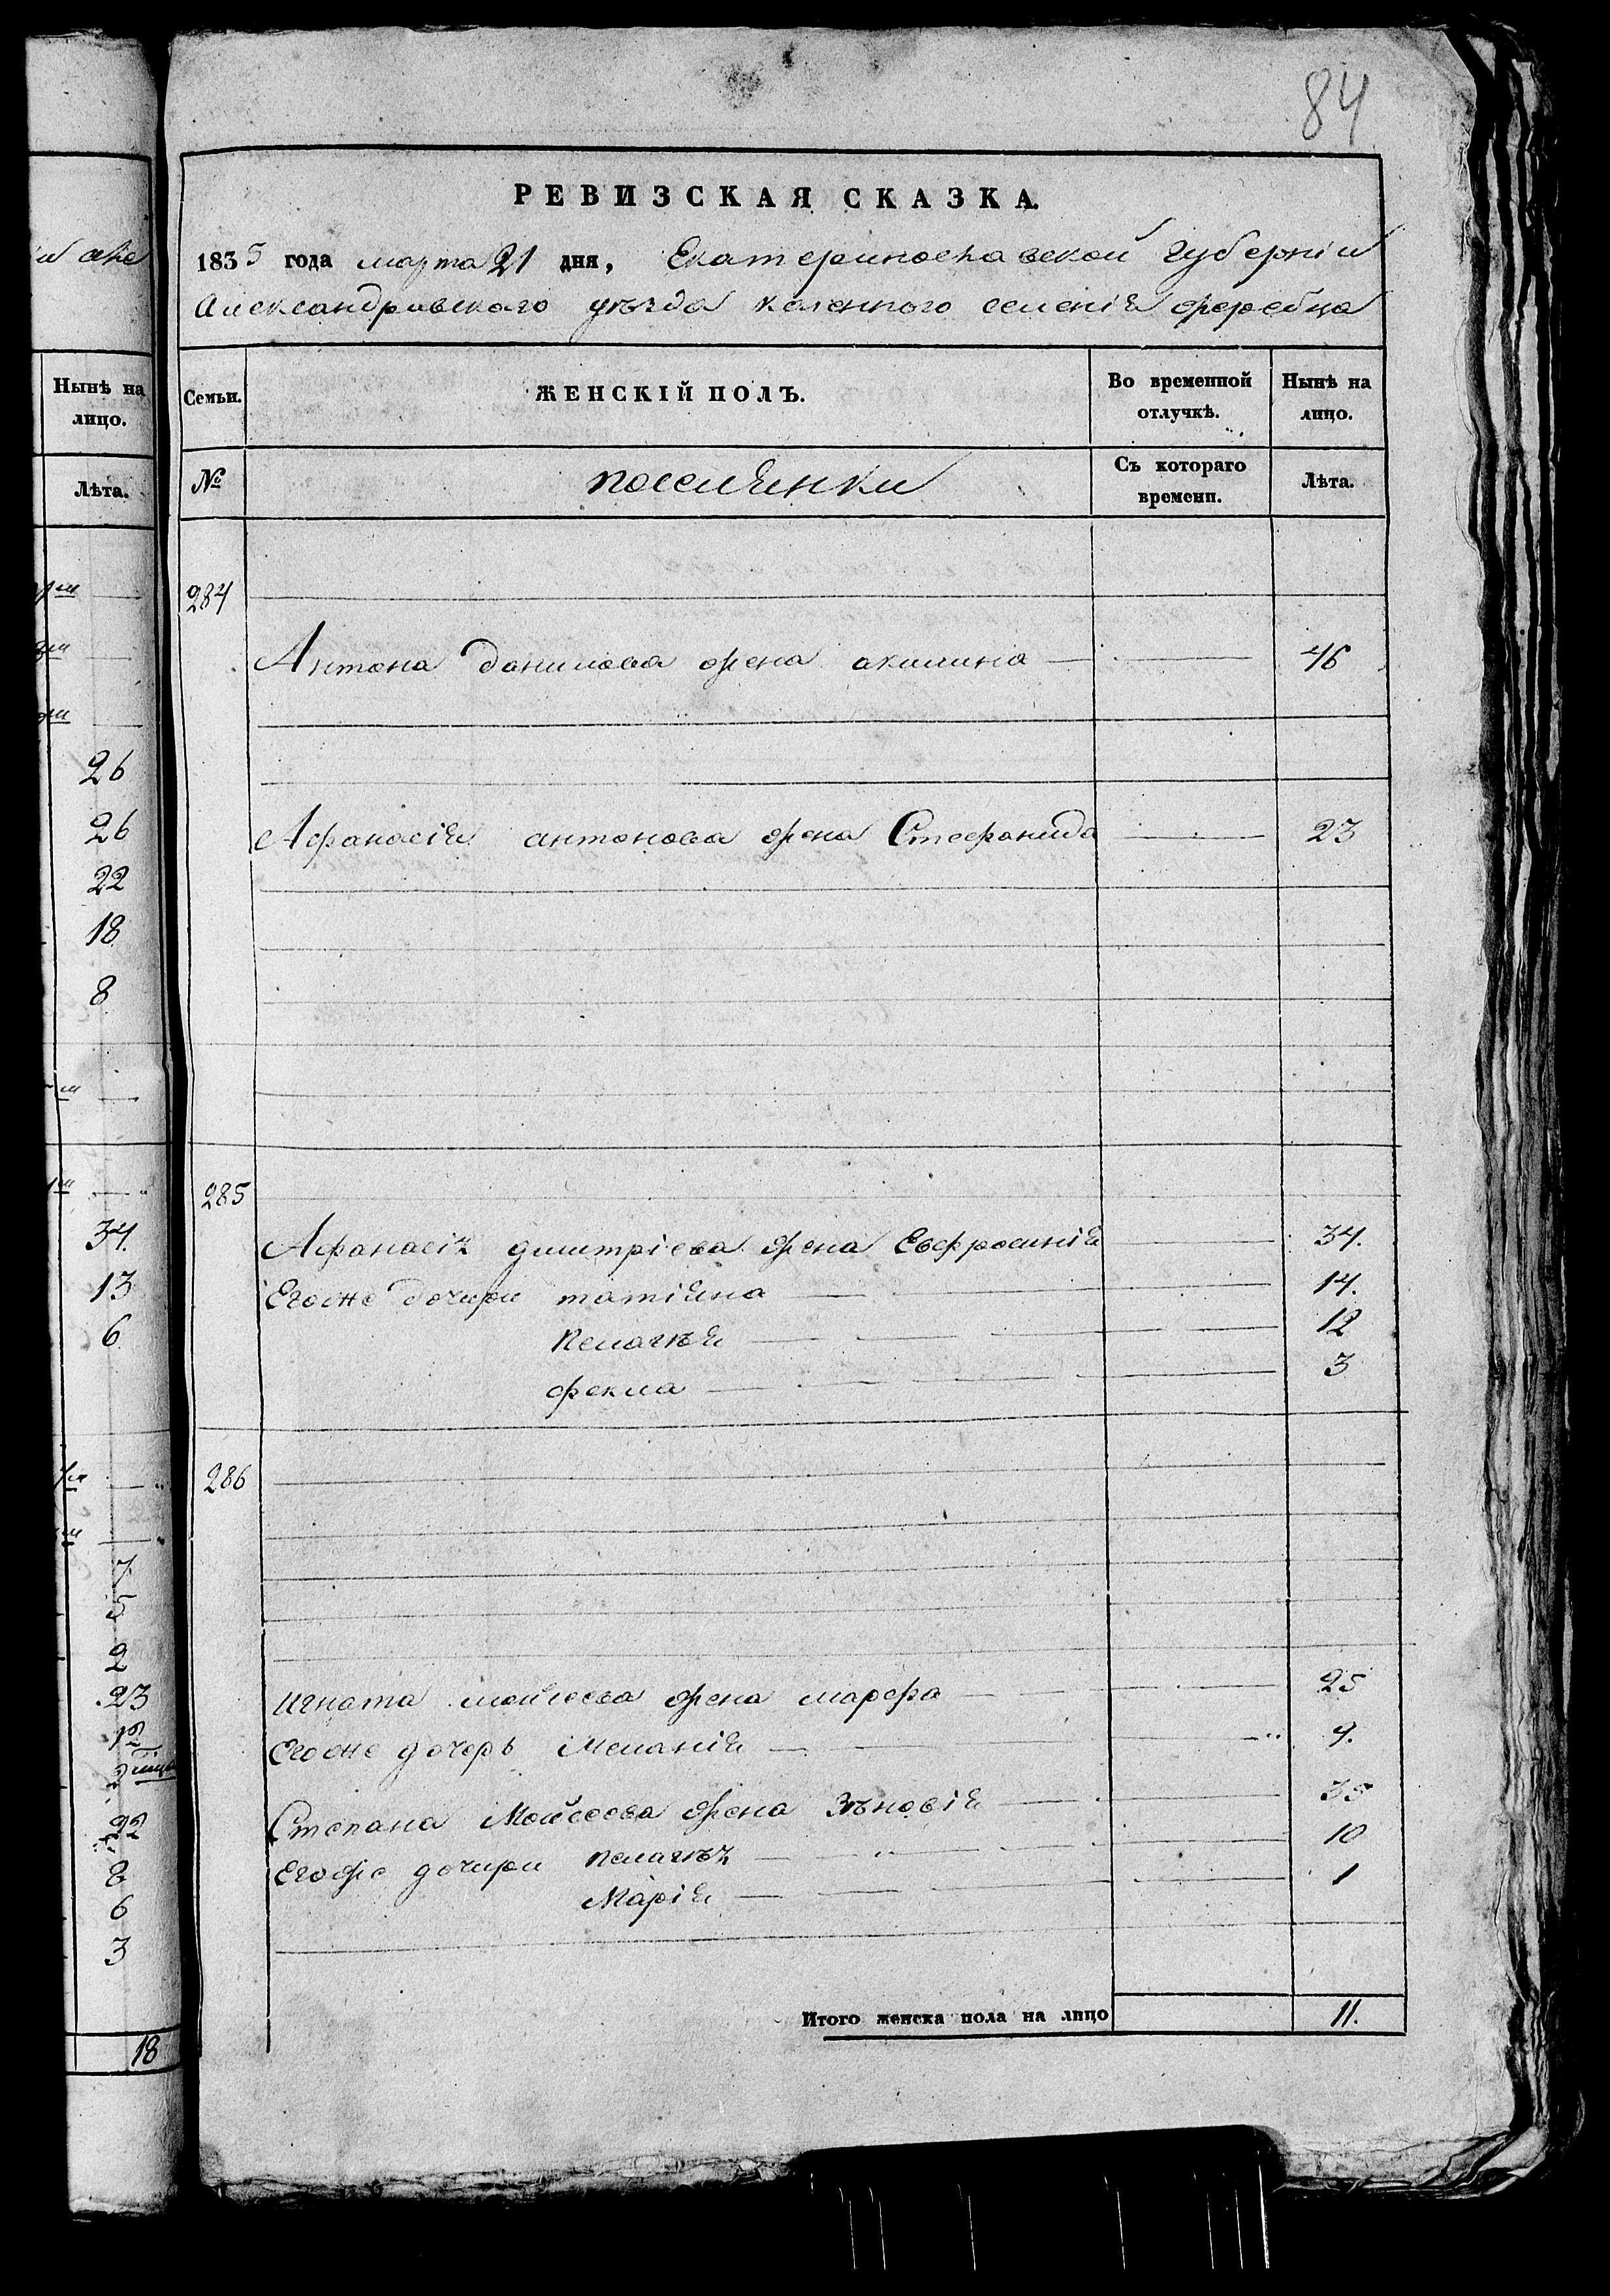 84
РЕВИЗСКАЯ СКАЗКА.
1835 года марта 21 дня, Екатеринославской Губерніи
Александровскаго уѣзда казеннаго селенія жеребца
Семьи. ЖЕНСКІЙ ПОЛЪ. Во временной отлучкѣ. Нынѣ на лицо.
№ поселянки Съ котораго времени. Лѣта.
284
Антона данилова жена акилина 46
Афанасія антонова жена Стефанида 23
285
Афанасія димитріева жена Евфросинія 34.
Егоже дочири татіяна 14.
Пелагѣя 12
фекла 3
286
Игната мойсеева жена марфа 25
Егоже дочерь Меланія 9.
Степана Мойсеева жена Зѣновія 35
Егоже дочири пелагѣя 10
Марія 1
Итого женска пола на лицо 11.
Нынѣ на
лицо.
Лѣта.
26
26
22
18
8
34.
13
6
7
5
2
23
12
22
8
6
3
18